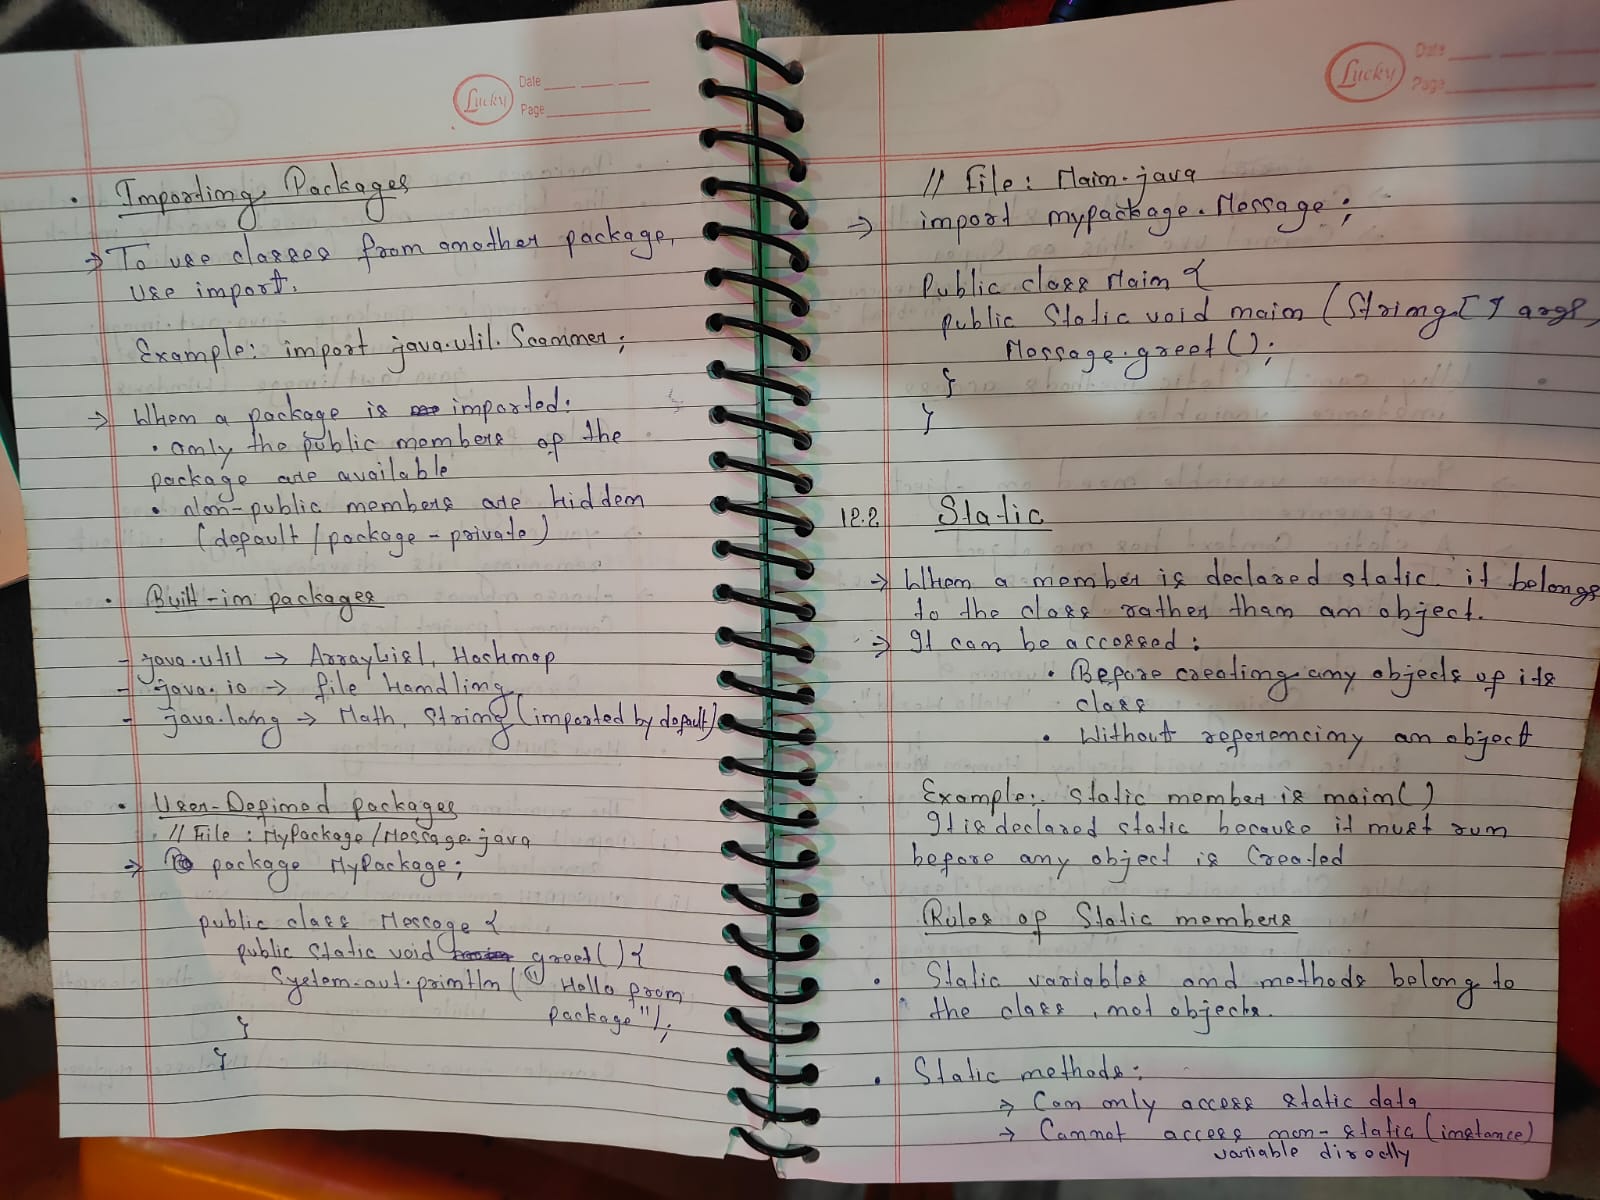 Lucky
Date
Page
• Importing Packages
→ To use classes from another package,
use import.
Example: import java.util.Scanner;
→ When a package is imported:
• only the public members of the
package are available
• Non-public members are hidden
(default/package-private)
• Built-in packages
- java.util → ArrayList, Hashmap
- java.io → file Handling
- java.lang → Math, String (imported by default)
• User-Defined packages
// File : MyPackage/Message.java
→ package MyPackage;
public class Message {
public static void greet() {
System.out.println("Hello from
package");
}
}
Lucky
Date
Page
// File : Main.java
→ import mypackage.Message;
Public class Main {
public Static void main (String[] args,
Message.greet();
}
}
12.2 Static
→ When a member is declared static it belongs
to the class rather than an object.
→ It can be accessed:
• Before creating any objects of its
class
• Without referencimy an object
Example: Static member is main()
It is declared static because it must run
before any object is Created
Rules of Static members
• Static variables and methods belong to
the class, not objects.
• Static methods:
→ Can only access static data
→ Cannot access non-static (instance)
variable directly